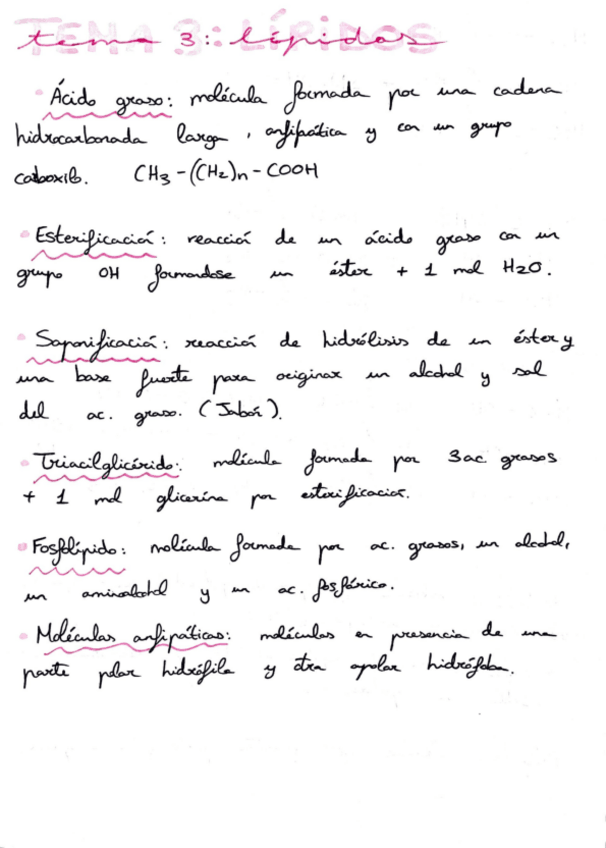 TEMA 3: LÍPIDOS
tema 3: lípidos
Ácido graso: molécula formada por una cadena
hidrocarbonada larga, anfipática y con un grupo
carboxilo. CH3-(CH2)n-COOH
Esterificación: reacción de un ácido graso con un
grupo OH formandose un éster + 1 mol H2O.
Saponificación: reacción de hidrólisis de un éster y
una base fuerte para originar un alcohol y sal
del ac. graso. (Jabón).
Triacilglicérido: molécula formada por 3 ac grasos
+ 1 mol glicerina por esterificación.
Fosfolípido: molécula formada por ac. grasos, un alcohol,
un aminoalcohol y un ac. fosfórico.
Moléculas anfipáticas: moléculas en presencia de una
parte polar hidrófila y otra apolar hidrófoba.